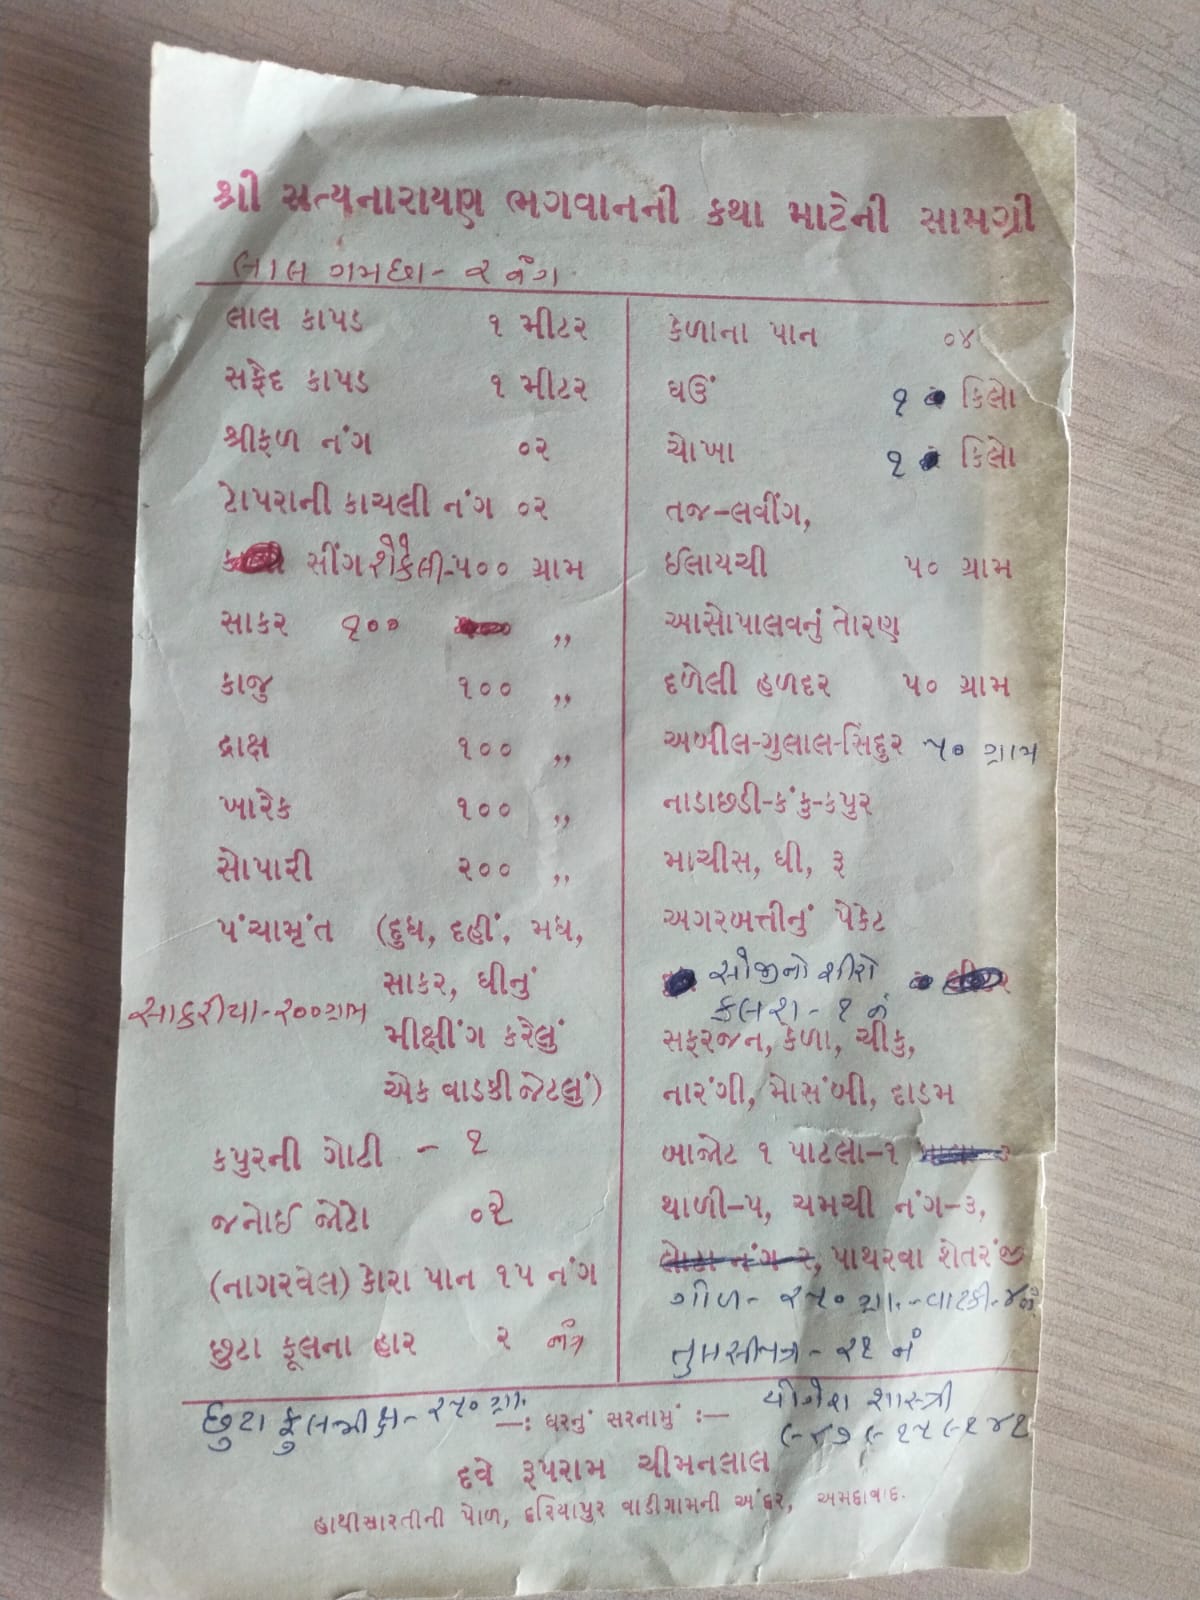 શ્રી સત્યનારાયણ ભગવાનની કથા માટેની સામગ્રી
લાલ ગમછા - ૨ નંગ
લાલ કાપડ ૧ મીટર
સફેદ કાપડ ૧ મીટર
શ્રીફળ નંગ ૦૨
ટોપરાની કાચલી નંગ ૦૨
સીંગ શેકેલી-૫૦૦ ગ્રામ
સાકર ૧૦૦ ,,
કાજુ ૧૦૦ ,,
દ્રાક્ષ ૧૦૦ ,,
ખારેક ૧૦૦ ,,
સોપારી ૨૦૦ ,,
પંચામૃંત (દુધ, દહીં, મધ,
સાકર, ઘીનું
સાકરીયા-૨૦૦ગ્રામ
મીક્ષીંગ કરેલું
એક વાડકી જેટલું)
કપુરની ગોટી - ૧
જનોઈ જોટો ૦૨
(નાગરવેલ) કોરા પાન ૧૫ નંગ
છુટા ફૂલના હાર ૨ નંગ
કેળાના પાન ૦૪
ઘઉં ૧ કિલો
ચોખા ૧ કિલો
તજ-લવીંગ,
ઈલાયચી ૫૦ ગ્રામ
આસોપાલવનું તોરણ
દળેલી હળદર ૫૦ ગ્રામ
અબીલ-ગુલાલ-સિંદુર ૫૦ ગ્રામ
નાડાછડી-કંકુ-કપુર
માચીસ, ઘી, રૂ
અગરબત્તીનું પેકેટ
સોજીનો શીરો
કલશ - ૧ નં
સફરજન, કેળા, ચીકુ,
નારંગી, મોસંબી, દાડમ
બાજોટ ૧ પાટલો-૧
થાળી-૫, ચમચી નંગ-૩,
લોટા નંગ ૨, પાથરવા શેતરંજી
ગોળ - ૨૫૦ ગ્રા. - વાટકી - ૪ નં
તુલસીપત્ર - ૨૧ નં
છુટા ફુલ મીક્ષ - ૨૫૦ ગ્રા.
—: ઘરનું સરનામું :—
યોગેશ શાસ્ત્રી
૯૪૭૯૧૫૯૧૪૧
દવે રૂપરામ ચીમનલાલ
હાથીખારતીની પોળ, દરિયાપુર વાડીગામની અંદર, અમદાવાદ.